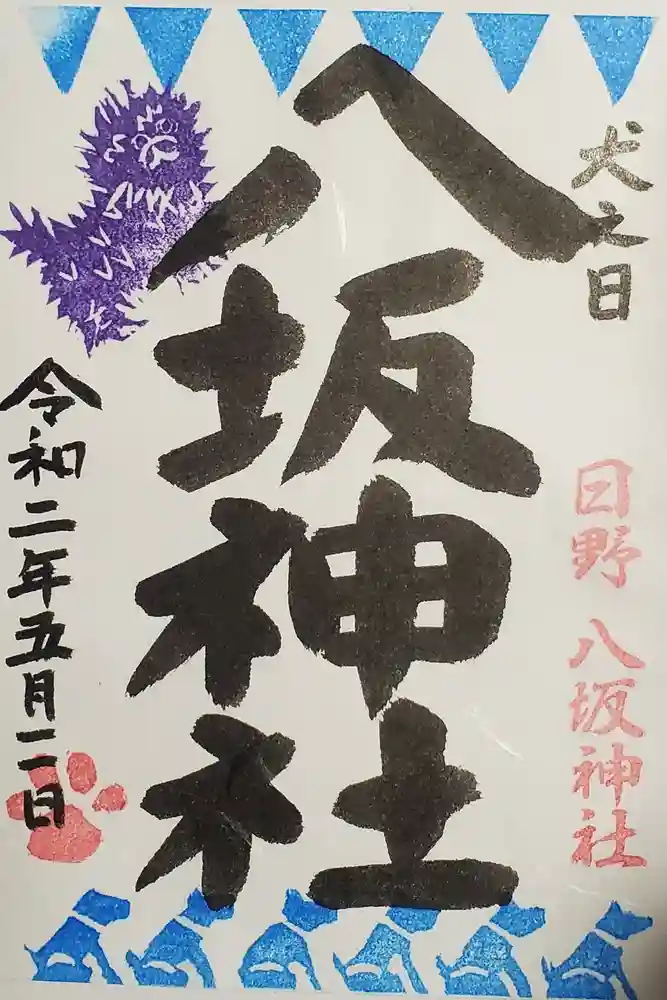 犬之日
日野 八坂神社
八坂神社
令和二年五月二日